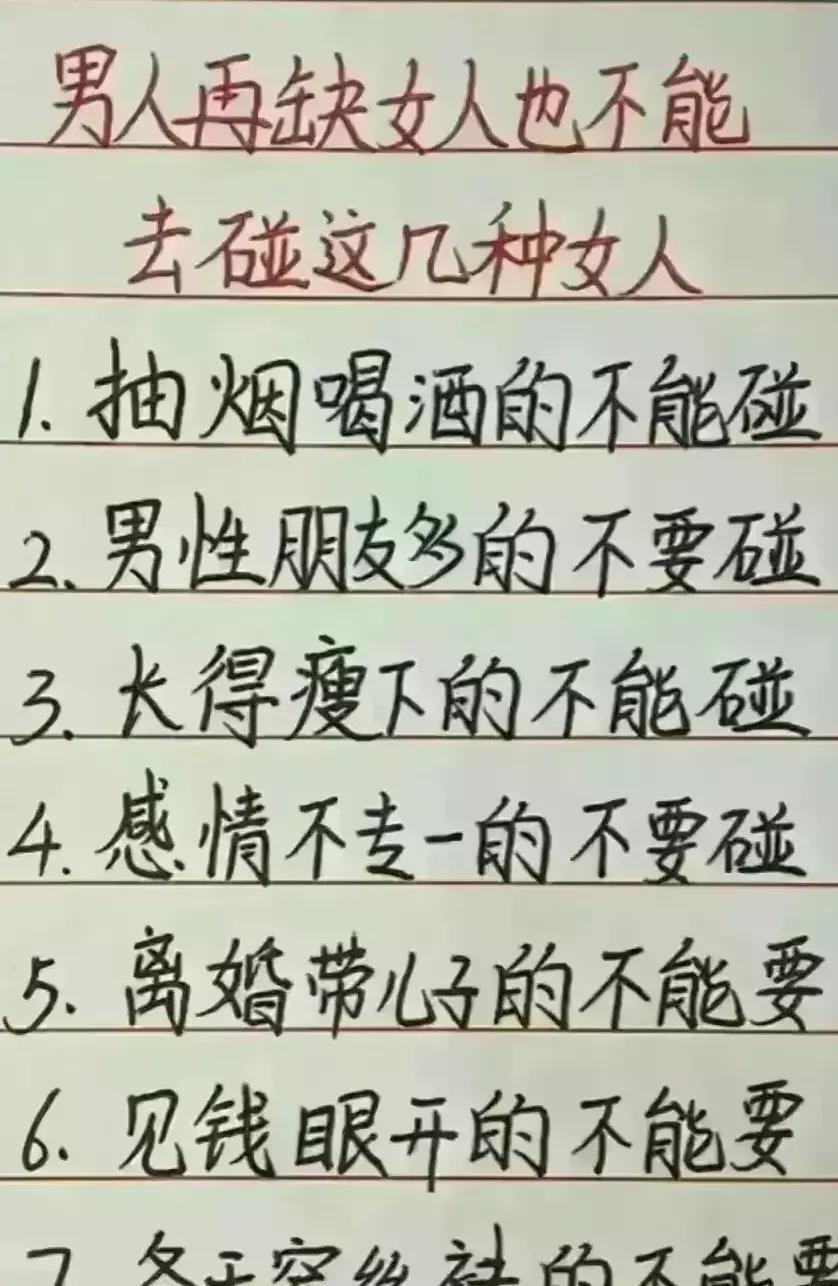 男人再缺女人也不能
去碰这几种女人
1. 抽烟喝酒的不能碰
2. 男性朋友多的不要碰
3. 长得瘦下的不能碰
4. 感情不专一的不要碰
5. 离婚带儿子的不能要
6. 见钱眼开的不能要
7 冬天穿丝袜的不能要